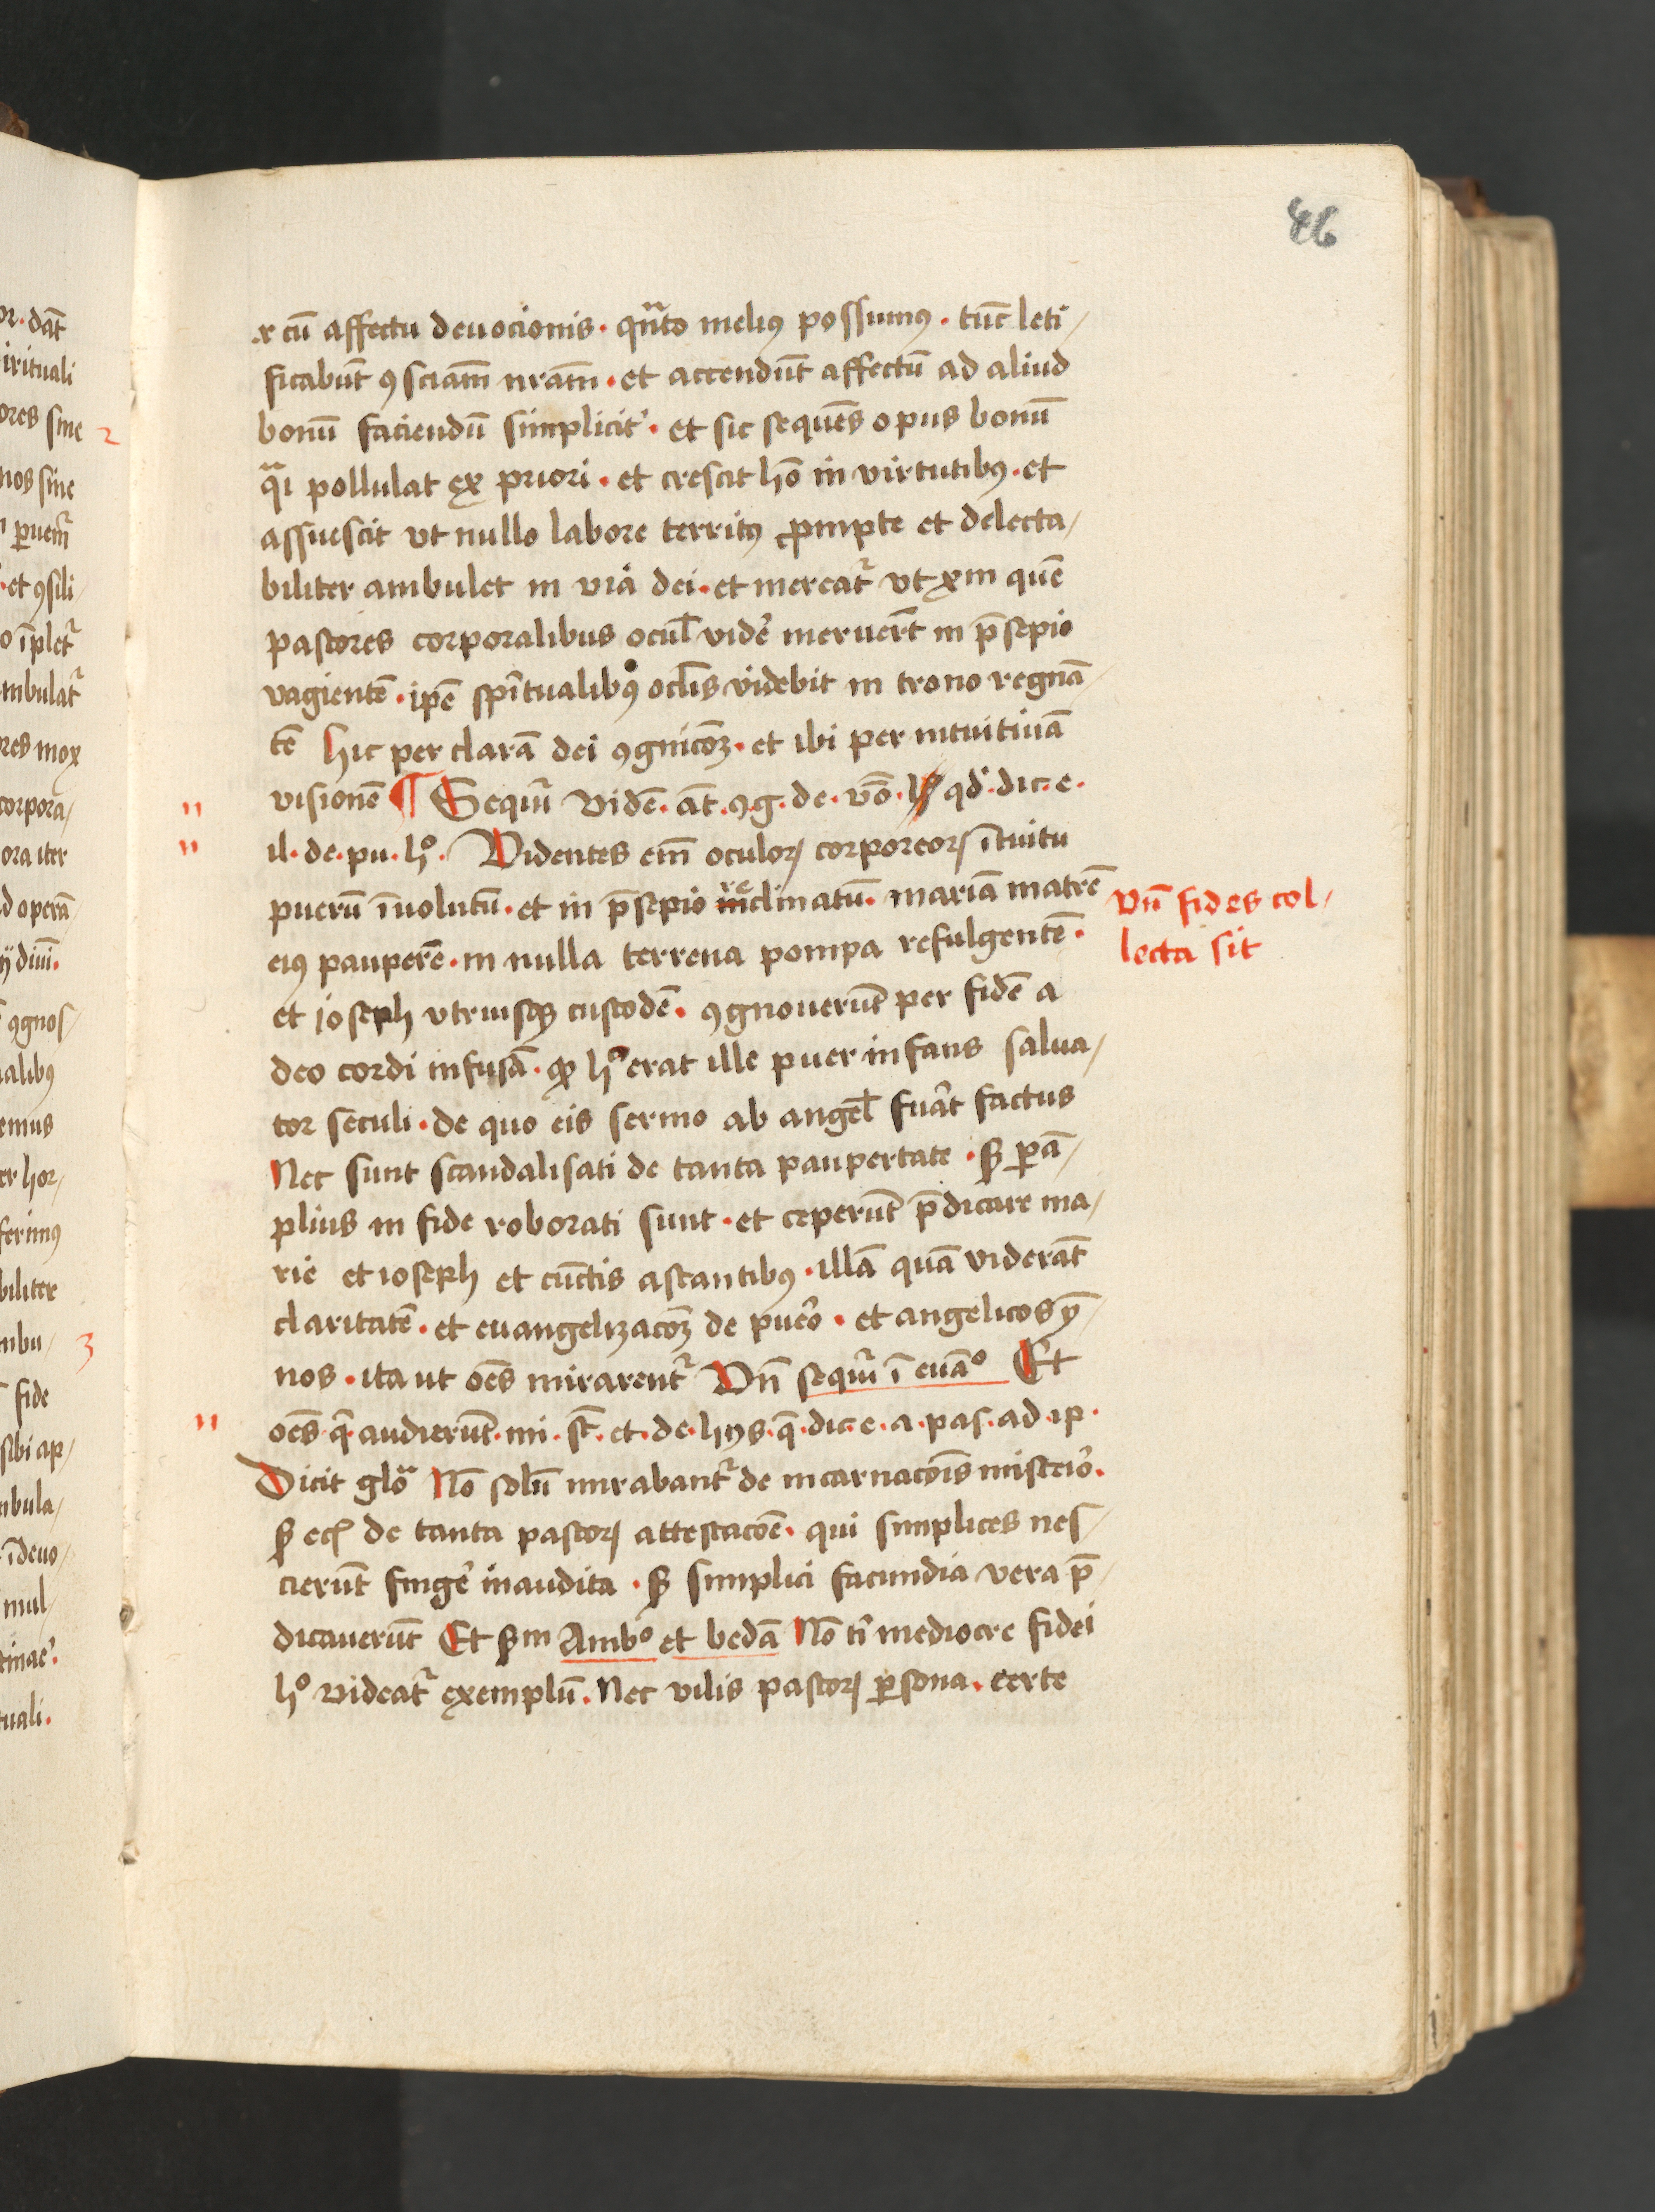 46
et cū affectu deuocionis · qn̄to melius possumus · tūc leti/
ficabūt ꝯsciam̄ nr̄am · et accendūt affectū ad aliud
bonū faciendū simplicit' · et sic sequēs opus bonū
qᵃi pollulat ex priori · et crescit hō in virtutibꝰ · et
assuescit vt nullo labore territꝰ ꝓmpte et delecta/
biliter ambulet in via dei · et mereat᷑ vt xp̄m quē
pastores corporalibus ocul' vide' meruer̄t in p̄sepio
vagientē · ip̄e sp̄itualibꝰ oclīs videbit in trono regnā/
tē hic per clarā dei ꝯgnicōꝫ · et ibi per intuitiuā
visionē ¶ Sequit᷑ Vidē · āt · ꝯg · de · v̄o · qd' · dic · e ·
il · de · pu · hº · Videntes em̄ oculoꝝ corporeoꝝ ītuitu
puerū īuolutū · et in p̄sepio reclinatū · mariā matrē
Vn̄ fides col/
lecta sit
eiꝰ pauperē · in nulla terrena pompa refulgentē ·
et ioseph vtriusqꝫ custodē · ꝯgnouerūt per fidē a
deo cordi infusā · ꝙ hº erat ille puer infans salua/
tor seculi · de quo eis sermo ab angel' fu'at factus
Nec sunt scandalisati de tanta paupertate · sꝫ ꝑ ā/
plius in fide roborati sunt · et ceperūt p̄dicare ma/
rie et ioseph et cūctis astantibꝰ · illā quā viderāt
claritatē · et euangelizacōꝫ de pue'o · et angelicos ȳ/
nos · ita ut oēs mirarent᷑ Vn̄ sequit᷑ ī euāº Et
oēs · q' · audierūt · mi · st̄ · et · de · hijs · q̄ · dic · e · a · pas · ad · ip ·
Dicit gloᵃ Nō solū mirabant᷑ de incarnacōis miste'io ·
sꝫ ecꝫ de tanta pastoꝝ attestacōe · qui simplices nes/
cierūt finge' inaudita · sꝫ simplici facundia vera p̄/
dicauerūt Et sꝫm Ambº et bedā Nō ti' mediocre fidei
hº videat᷑ exemplū · Nec vilis pastoꝝ ꝑsona · certe